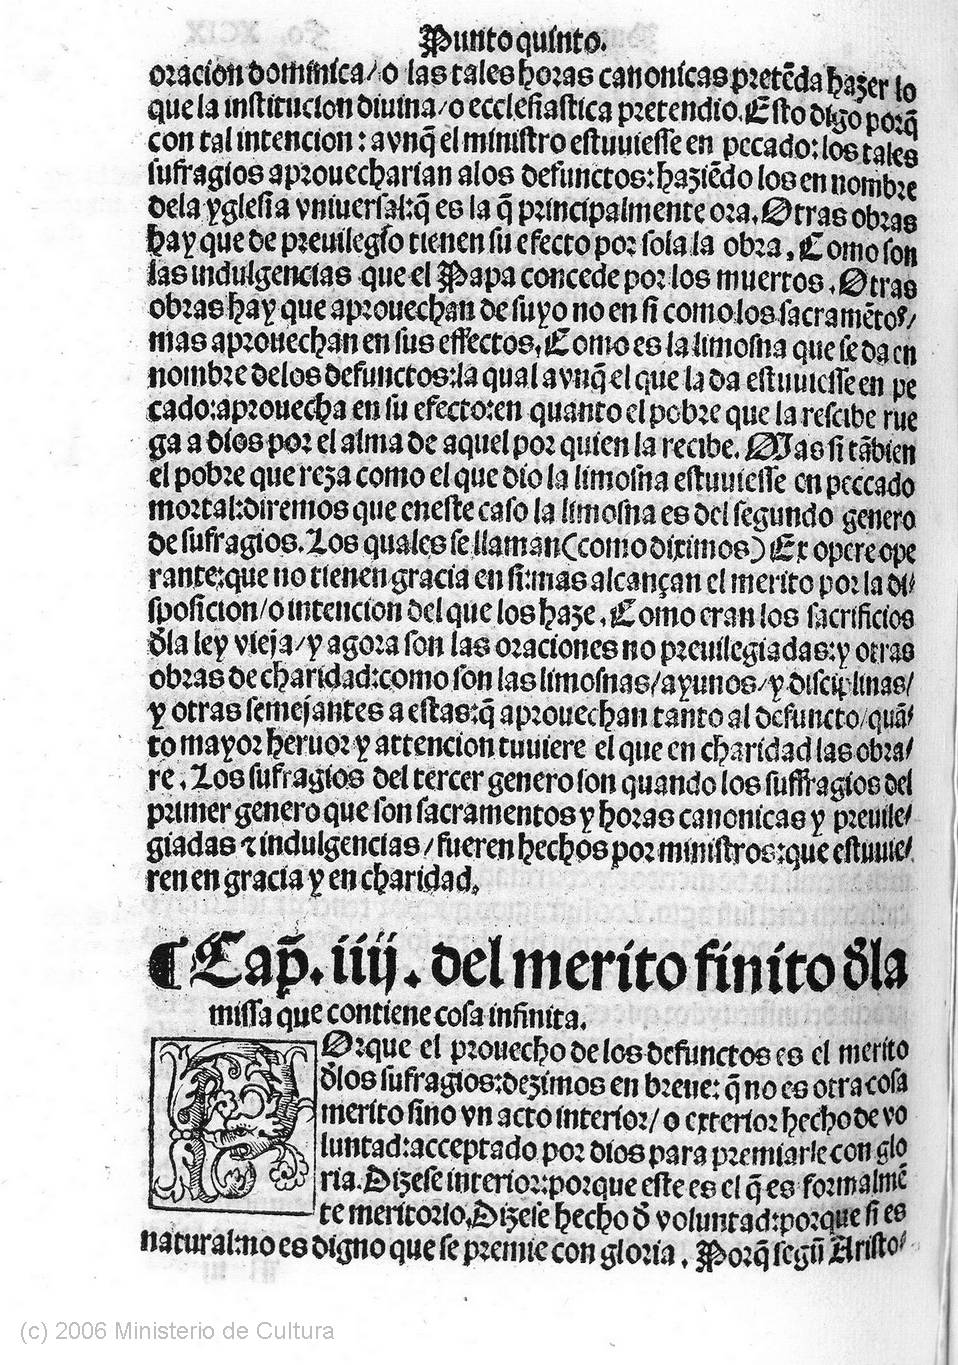 Punto quinto.
oracion dominica/o las tales horas canonicas pretẽda hazer lo
que la institucion diuina/o ecclesiastica pretendio. Esto digo porq̃
con tal intencion: avnq̃ el ministro estuuiesse en peccado: los tales
sufragios aprouecharian alos defunctos: haziẽdo los en nombre
dela yglesia vniuersal: q̃ es la q̃ principalmente ora. Otras obras
hay que de preuilegio tienen su efecto por sola la obra. Como son
las indulgencias que el Papa concede por los muertos. Otras
obras hay que aprouechan de suyo no en si como los sacramẽtos/
mas aprouechan en sus effectos. Como es la limosna que se da en
nombre delos defunctos: la qual avnq̃ el que la da estuuiesse en pe
cado: aprouecha en su efecto: en quanto el pobre que la rescibe rue
ga a dios por el alma de aquel por quien la recibe. Mas si tãbien
el pobre que reza como el que dio la limosna estuuiesse en peccado
mortal: diremos que eneste caso la limosna es del segundo genero
de sufragios. Los quales se llaman (como diximos) Ex opere ope
rante: que no tienen gracia en si: mas alcançan el merito por la di/
sposicion/o intencion del que los haze. Como eran los sacrificios
d̃la ley vieja/y agora son las oraciones no preuilegiadas: y otras
obras de charidad: como son las limosnas/ayunos/y disciplinas/
y otras semejantes a estas: q̃ aprouechan tanto al defuncto/quã/
to mayor heruor y attencion tuuiere el que en charidad las obra/
re. Los sufragios del tercer genero son quando los suffragios del
primer genero que son sacramentos y horas canonicas y preuile/
giadas ⁊ indulgencias/fueren hechos por ministros: que estuuie/
ren en gracia y en charidad.
¶ Cap̃. iiij. del merito finito d̃la
missa que contiene cosa infinita.
POrque el prouecho de los defunctos es el merito
d̃los sufragios: dezimos en breue: q̃ no es otra cosa
merito sino vn acto interior/o exterior hecho de vo
luntad: acceptado por dios para premiarle con glo
ria. Dizese interior: porque este es el q̃ es formalmẽ
te meritorio. Dizese hecho d̃ voluntad: porque si es
natural: no es digno que se premie con gloria. Porq̃ segũ Aristo/
(c) 2006 Ministerio de Cultura